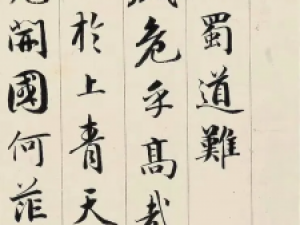 蜀道難
危乎高哉
於上青天
開國何茫